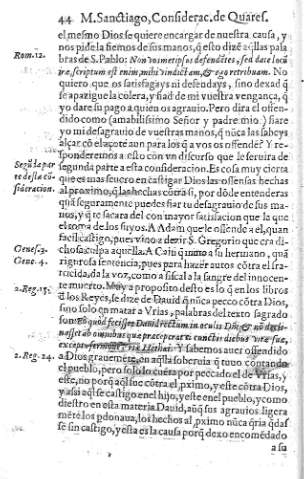 44 M. Sanctiago, Considerac. de Quares.
el mesmo Dios se quiere encargar de nuestra causa, y
nos pide la fiemos de sus manos, q̃ esto dizē aq̃llas pala
bras de S. Pablo: Non vosmetipsos defendētes, sed date locũ
Rom. 12.
iræ, scriptum est enim, mihi vindictam, & ego retribuam. No
quiero que os satisfagays ni defendays, sino dexad q̃
se apazigue la colera, y fiad de mi vuestra vengança, q̃
yo dare su pago a quien os agrauio. Pero dira el offen-
dido como (amabilissimo Señor y padre mio) fiare
yo mi desagrauio de vuestras manos, q̃ nũca las sabeys
alçar cõ el açote aun para los q̃ a vos os offendē? Y re-
sponderemos a esto cõ vn discurso que le seruira de
segunda parte a esta consideracion. Es cosa muy cierta
Segũda par
te desta cõ
sideracion.
que es mas seuero en castigar Dios las offensas hechas
al proximo, q̃ las hechas cõtra si, por dõde entenderas
quā seguramente puedes fiar tu desagrauio de sus ma-
nos, y q̃ te sacara del con mayor satisfacion que la que
el toma de los suyos. A Adam que le offende a el, quan
facil castigo, pues vino a dezir S. Gregorio que era di-
Genes. 3.
chosa culpa aquella. A Cain q̃ mato a su hermano, quā
Genes. 4.
rigurosa sentencia, pues para hazer autos cõtra el fra-
tricida, da la voz, como a fiscal a la sangre del innocen-
te muerto. Muy a proposito desto es lo q̃ en los libros
2. Reg. 15.
de los Reyes, se dize de Dauid q̃ nũca pecco cõtra Dios,
sino solo en matar a Vrias, palabras del texto sagrado
son. Eo quòd fecisset Dauid rectum in oculis Dñi, & nõ decli-
nasset ab omnibus quæ præceperat ei cunctis diebus vitæ suæ,
excepto sermone Vriæ Hethæi. Y sabemos auer offendido
2. Reg. 24.
a Dios grauemēte en aq̃lla soberuia q̃ tuuo contando
el pueblo, pero solo lo cuēta por peccado el de Vrias, y
esse, no porq̃ aq̃l fue cõtra el, pximo, y este cõtra Dios,
y assi aq̃l se castigo en el hijo, y este en el pueblo, y como
diestro en esta materia Dauid, aũq̃ sus agrauios ligera
mēte los pdonaua, los hechos al, primo nũca q̃ria q̃das
sē sin castigo, y esta es la causa porq̃ dexo encomēdado
a su